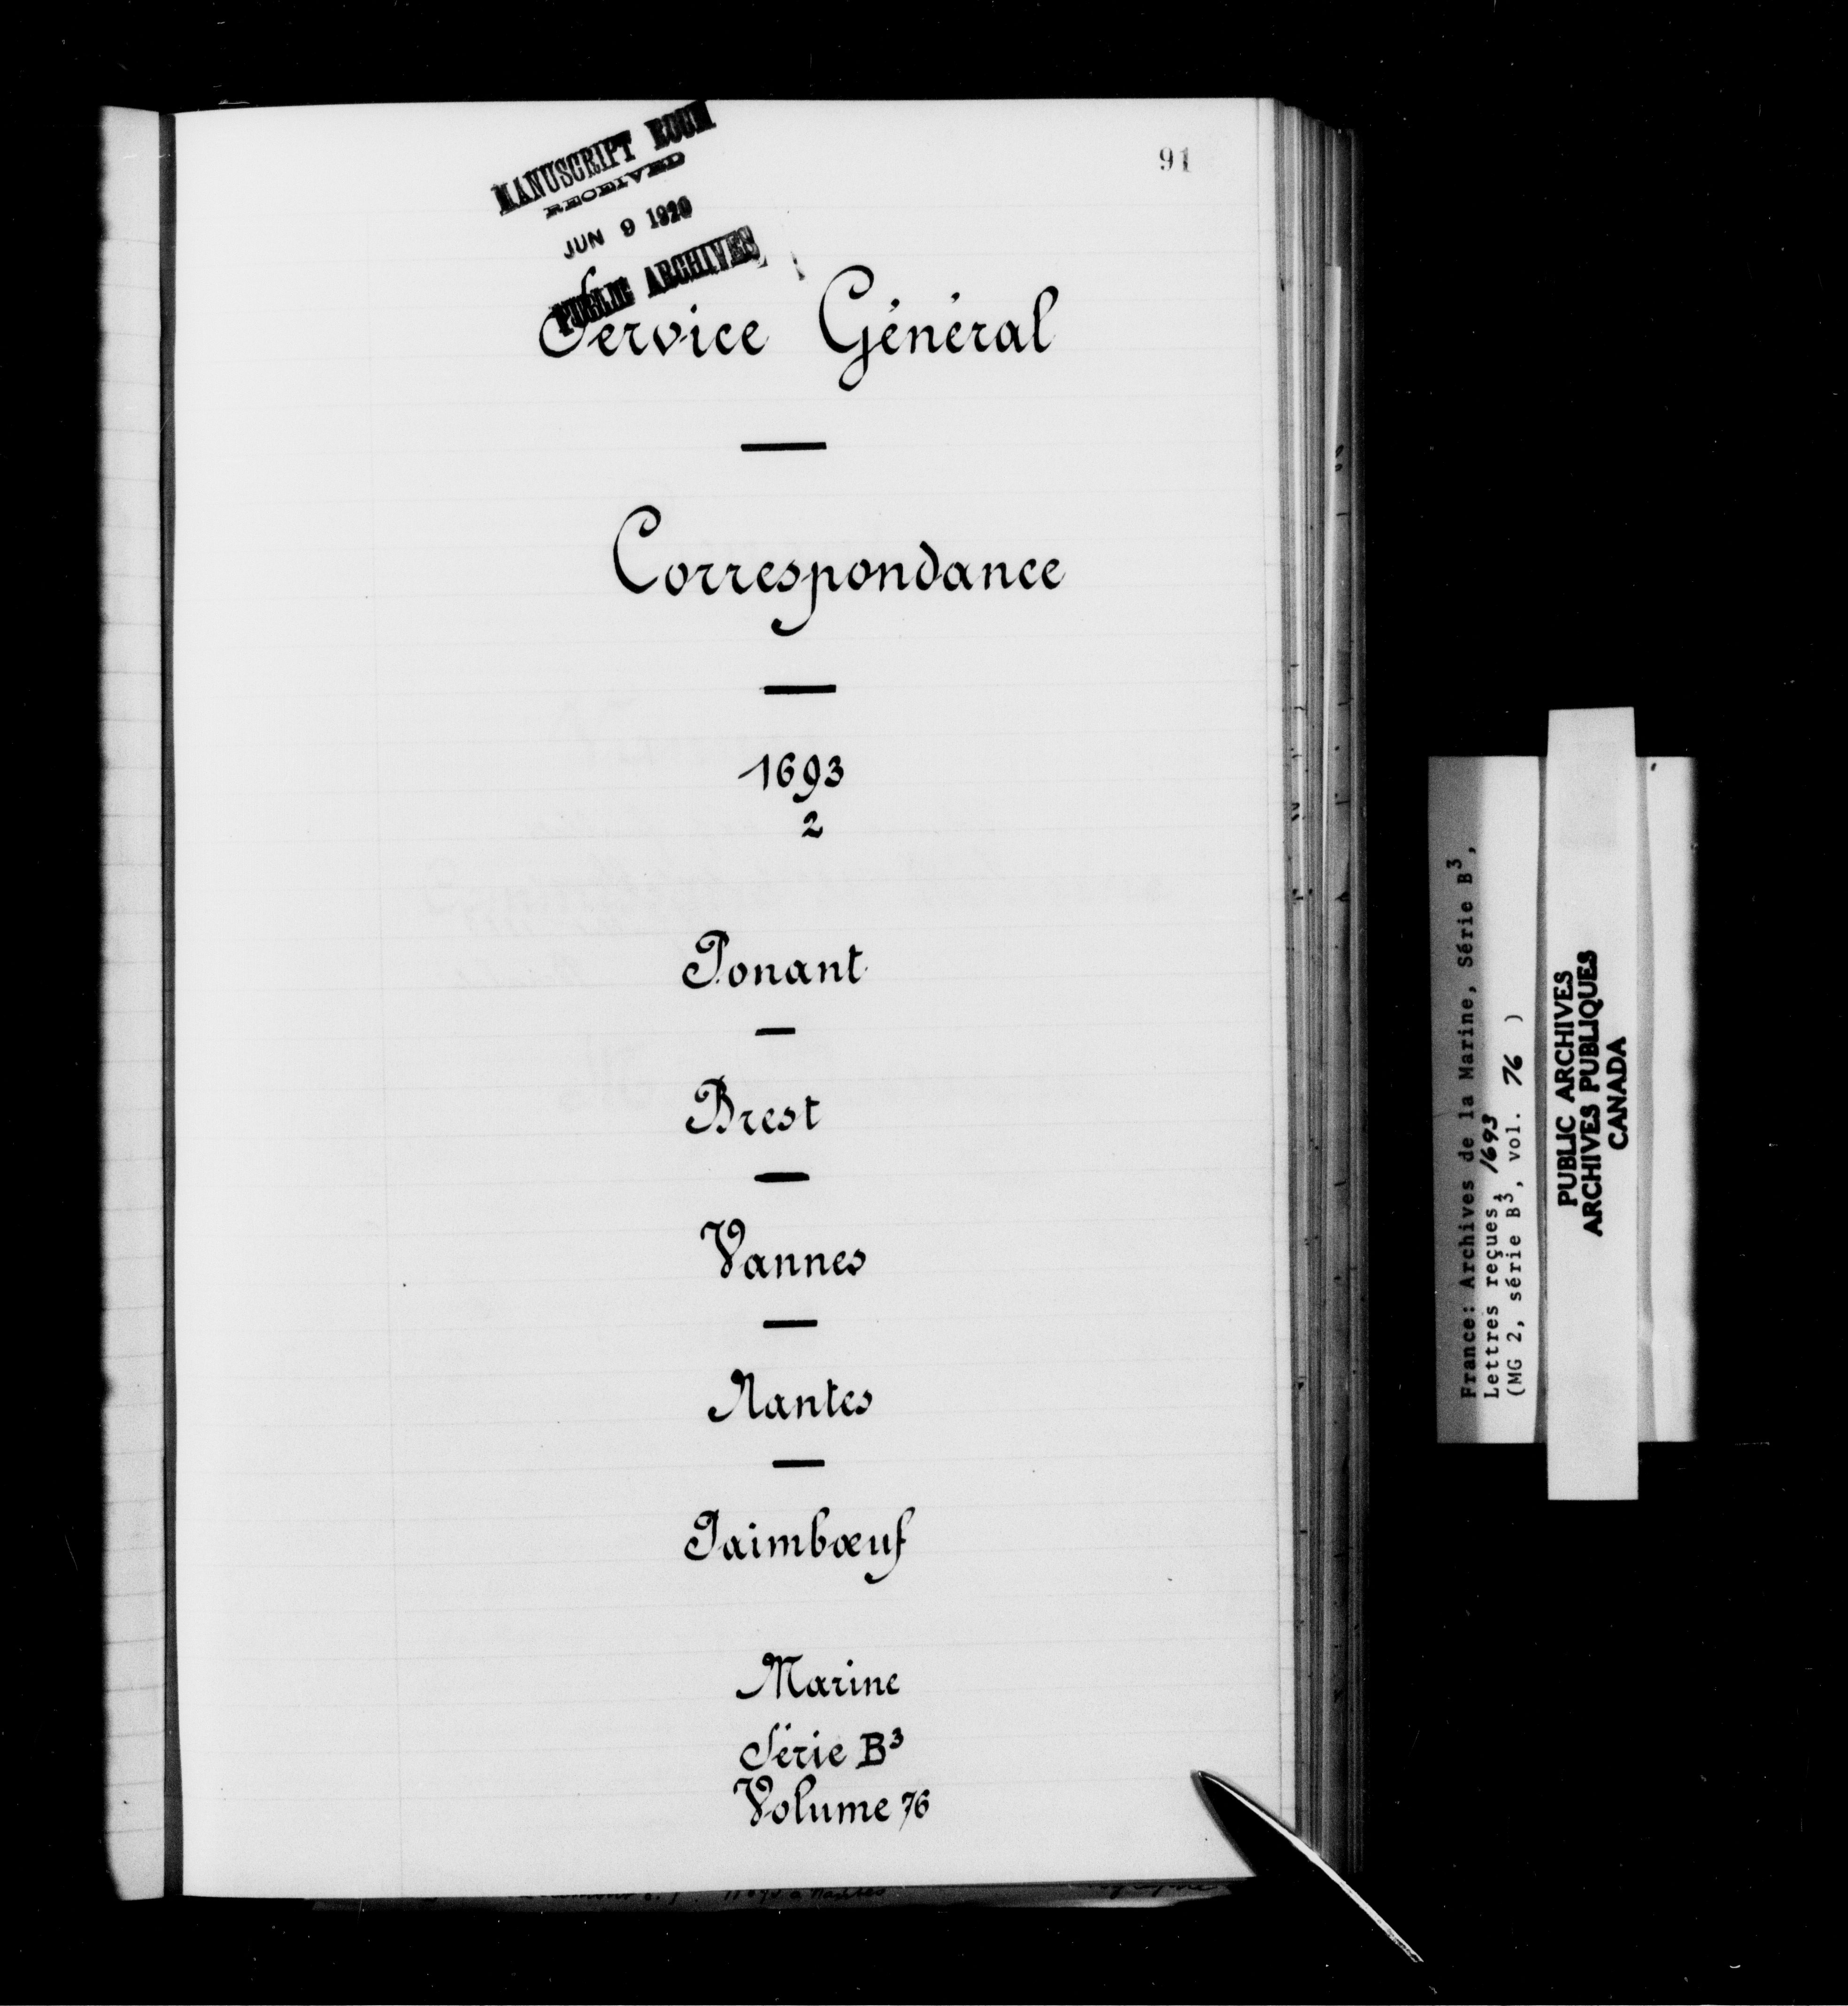 MANUSCRIPT ROOM
RECEIVED
JUN 9 1920
PUBLIC ARCHIVES
91
Service Général
Correspondance
1693
2
Ponant
Brest
Vannes
Nantes
Paimbœuf
Marine
Série B³
Volume 76
France: Archives de la Marine, Série B³,
Lettres reçues, 1693
(MG 2, série B³, vol. 76 )
PUBLIC ARCHIVES
ARCHIVES PUBLIQUES
CANADA